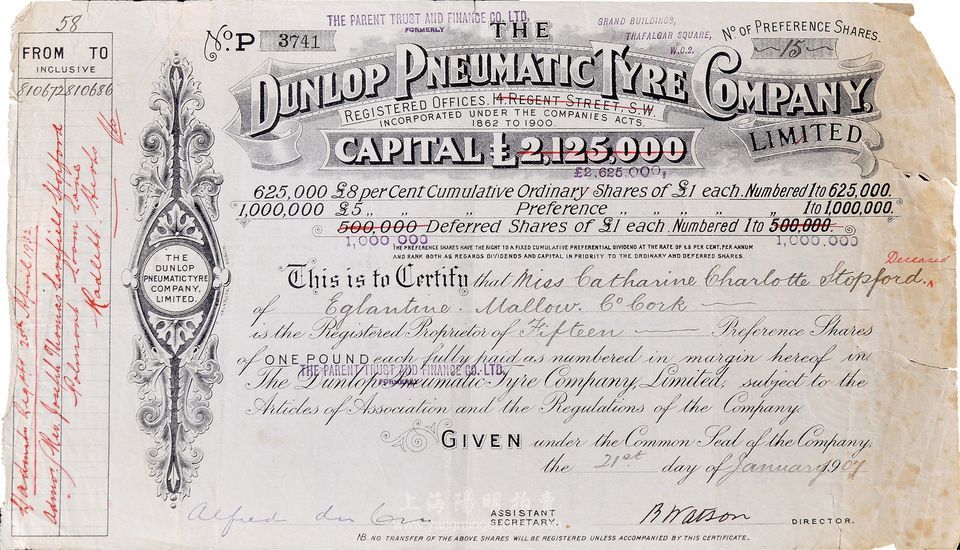 58
FROM TO
INCLUSIVE
810672 810686
THE PARENT TRUST AND FINANCE CO. LTD.
FORMERLY
GRAND BUILDINGS,
TRAFALGAR SQUARE,
W.C.2.
No. P 3741
No OF PREFERENCE SHARES.
15
THE
DUNLOP PNEUMATIC TYRE COMPANY,
LIMITED
REGISTERED OFFICES. 14, REGENT STREET, S.W.
INCORPORATED UNDER THE COMPANIES ACTS.
1862 TO 1900.
CAPITAL £2,125,000
£2,625,000,
625,000 £8 per Cent Cumulative Ordinary Shares of £1 each. Numbered 1 to 625,000.
1,000,000 £5 ,, ,, ,, Preference ,, ,, ,, ,, ,, 1 to 1,000,000.
500,000 Deferred Shares of £1 each. Numbered 1 to 500,000.
1,000,000 1,000,000
THE PREFERENCE SHARES HAVE THE RIGHT TO A FIXED CUMULATIVE PREFERENTIAL DIVIDEND AT THE RATE OF £5 PER CENT, PER ANNUM
AND RANK BOTH AS REGARDS DIVIDENDS AND CAPITAL IN PRIORITY TO THE ORDINARY AND DEFERRED SHARES.
Deceased
This is to Certify that Miss Catharine Charlotte Stopford.
of Eglantine. Mallow. Co Cork
is the Registered Proprietor of Fifteen Preference Shares
of ONE POUND each fully paid as numbered in margin hereof in
THE PARENT TRUST AND FINANCE CO. LTD.
FORMERLY
The Dunlop Pneumatic Tyre Company, Limited, subject to the
Articles of Association and the Regulations of the Company.
GIVEN under the Common Seal of the Company,
the 21st day of January 1907
Alfred du
ASSISTANT
SECRETARY.
B Watson
DIRECTOR.
NB. NO TRANSFER OF THE ABOVE SHARES WILL BE REGISTERED UNLESS ACCOMPANIED BY THIS CERTIFICATE.
THE
DUNLOP
PNEUMATIC TYRE
COMPANY,
LIMITED.
20th April 1932
Joseph Thomas Stopford
Loom Lane
Radlett. Herts
上海陽明拍賣